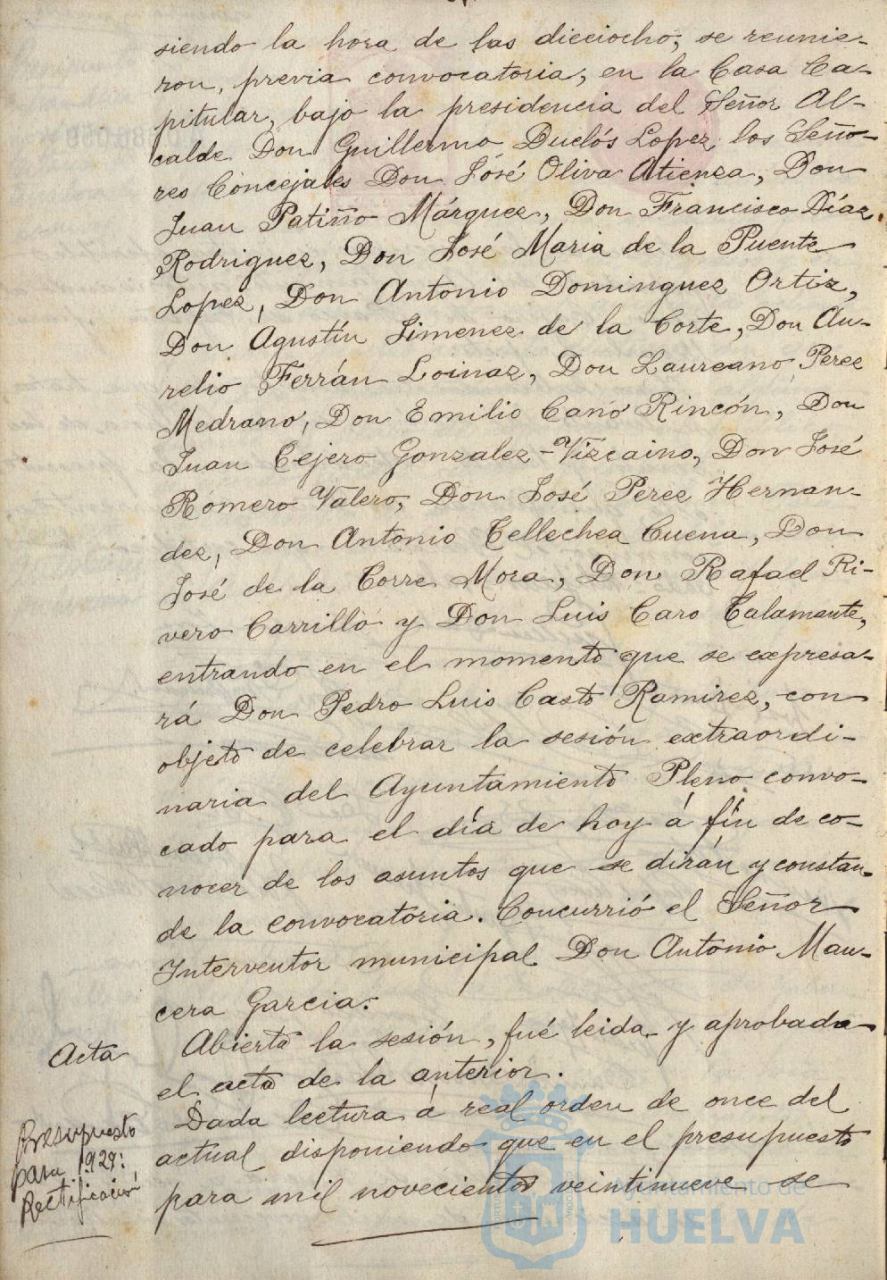 siendo la hora de las dieciocho, se reunie-
ron, previa convocatoria, en la Casa Ca-
pitular, bajo la presidencia del Señor Al-
calde Don Guillermo Duclós Lopez, los Seño-
res Concejales Don José Oliva Atienza, Don
Juan Patiño Márquez, Don Francisco Díaz
Rodriguez, Don José Maria de la Puente
Lopez, Don Antonio Dominguez Ortiz,
Don Agustín Jimenez de la Corte, Don Au-
relio Ferrán Loinaz, Don Laureano Perez
Medrano, Don Emilio Cano Rincón, Don
Juan Tejero Gonzalez-Vizcaino, Don José
Romero Valero, Don José Perez Hernan-
dez, Don Antonio Tellechea Cuena, Don
José de la Torre Mora, Don Rafael Ri-
vero Carrillo y Don Luis Caro Talamante,
entrando en el momento que se expresa-
rá Don Pedro Luis Casto Ramirez, con
objeto de celebrar la sesión extraordi-
naria del Ayuntamiento Pleno convo-
cado para el día de hoy á fín de co-
nocer de los asuntos que se dirán y constan
de la convocatoria. Concurrió el Señor
Interventor municipal Don Antonio Man-
cera Garcia.
Acta
Abierta la sesión, fué leida y aprobada
el acta de la anterior.
Presupuesto
para 1929:
Rectificación
Dada lectura á real orden de once del
actual disponiendo que en el presupuesto
para mil novecientos veintinueve se
Ayuntamiento de
HUELVA